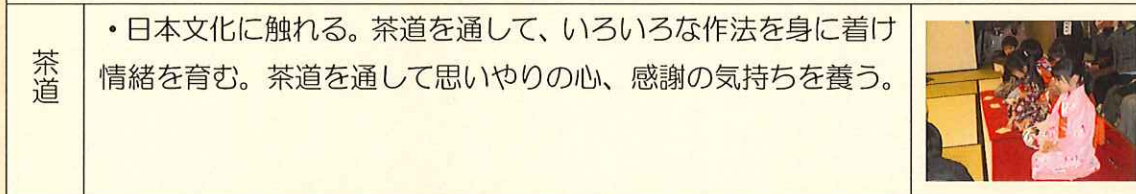 茶道
・日本文化に触れる。茶道を通して、いろいろな作法を身に着け
情緒を育む。茶道を通して思いやりの心、感謝の気持ちを養う。